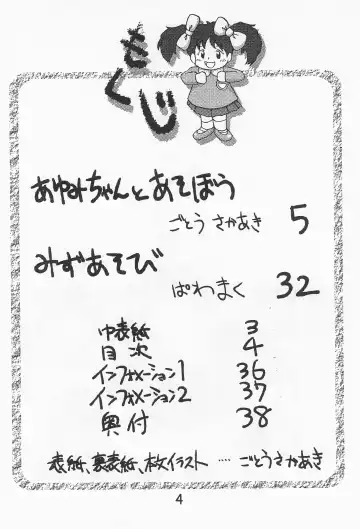 もくじ
あゆみちゃんとあそぼう
ごとう さかあき 5
みずあそび
ぱわまく 32
中表紙 3
目次 4
インフォメーション1 36
インフォメーション2 37
奥付 38
表紙、裏表紙、本文イラスト ‥‥ ごとうさかあき
4